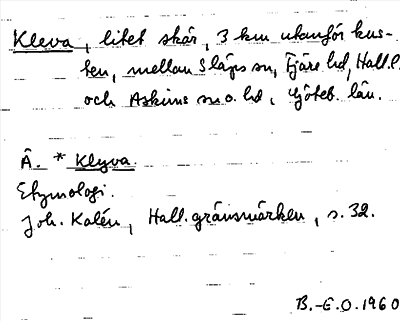 Kleva, litet skär, 3 km utanför kus-
ten, mellan Släps sn, Fjäre hd, Hall.l.
och Askims sn o. hd, Göteb. län.
Ä. * Klyva.
Etymologi.
Joh. Kalén, Hall.gränsmärken, s. 32.
B.-E.O. 1960